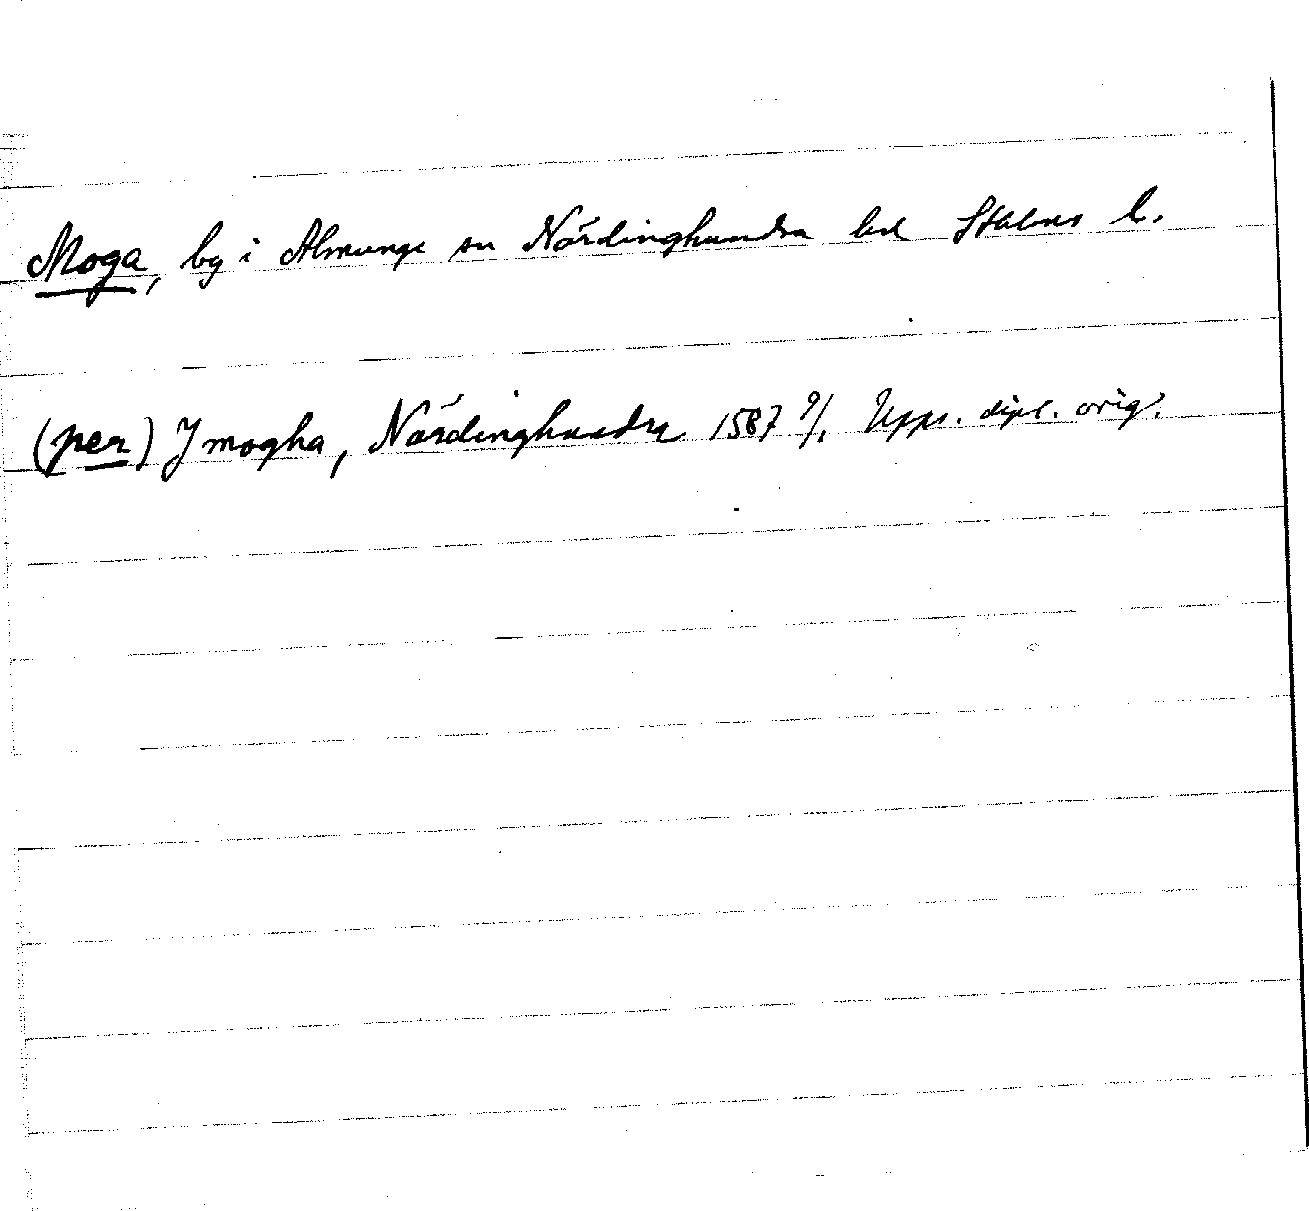 Moga, by i Almunge sn Närdinghundra hd Sthlms l.
(per) J mogha, Närdinghundra 1587 9/1 Upps. dipl. orig.